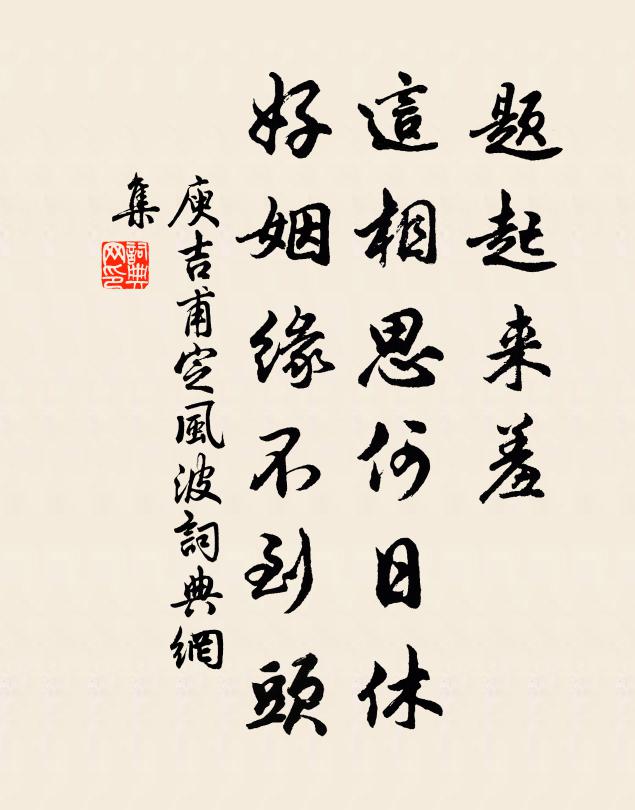 题起来羞
這相思何日休
好姻缘不到頭
庾吉甫定風波詞典網
集
詞典
网印